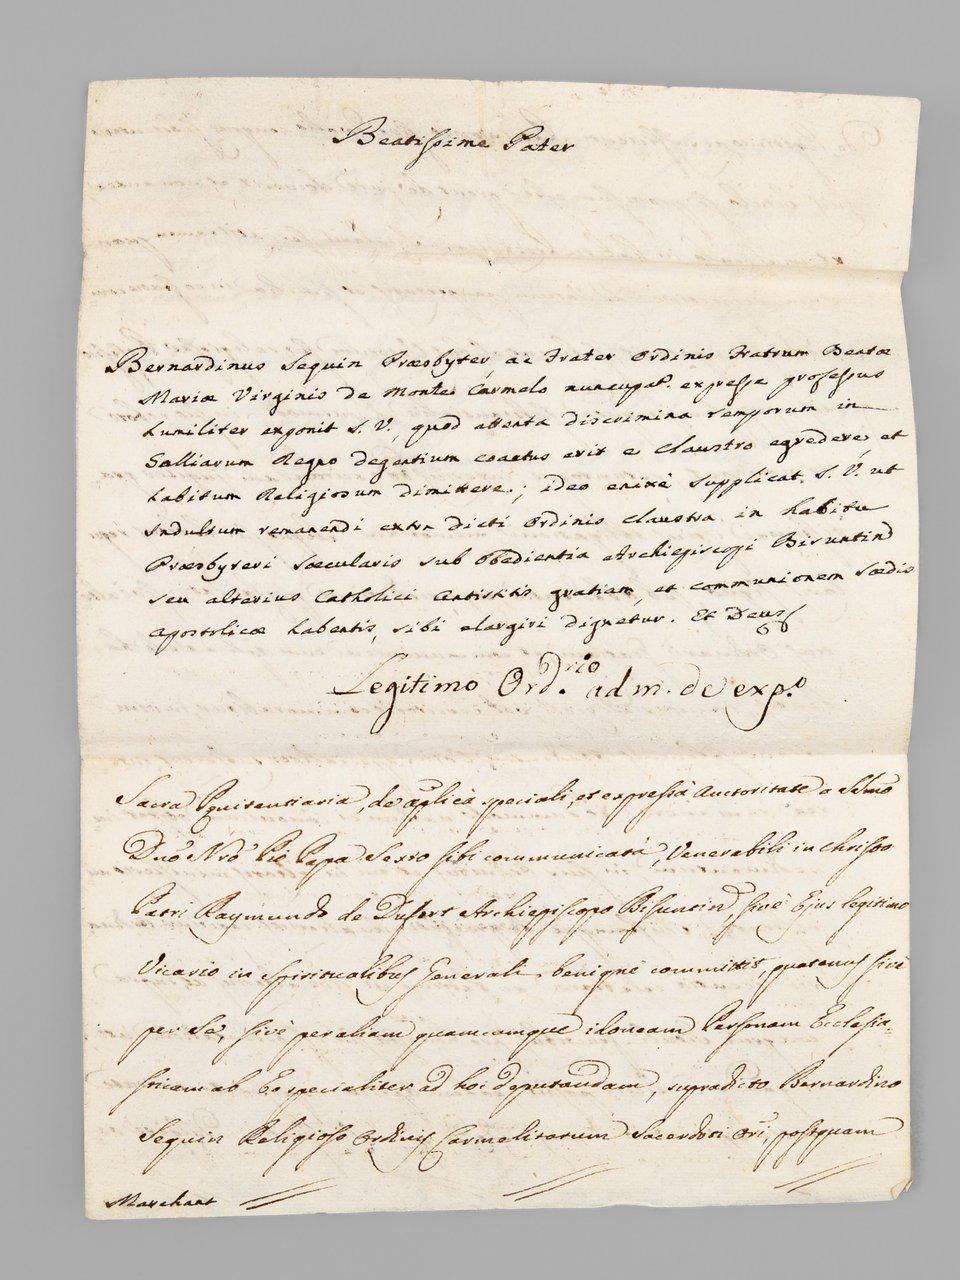 Beatissime Pater
Bernardinus Seguin Præsbyter, ac Frater Ordinis Fratrum Beatæ
Mariæ Virginis de Monte Carmelo nuncupat. expresse professus
humiliter exponit S. V., quod attenta discrimina temporum in
Galliarum Regno degentium coactus erit e claustro egredere, et
habitum Religiosum dimittere; ideo enixè supplicat S. V. ut
Indultum remanendi extra dicti Ordinis claustra in habitu
Præsbyteri sæcularis sub obedientia Archiepiscopi Bisuntin
seu alterius Catholici Antistitis gratiam, et communionem Sædis
Apostolicæ habentis, sibi elargiri dignetur. Et Deus
Legitimo Ord.rio adm. de exp.o
Sacra Pænitentiaria, de aplica speciali, et expressa Auctoritate a Ssmo
Dno Nro Pio Papa Sexto sibi communicatâ, Venerabili in Christo
Patri Raymundo de Dufort Archiepiscopo Bisuntin, sivè Ejus legitimo
Vicario in Spiritualibus Generali benignè committit, quatenus sivè
per Se, sivè per aliam quamcumque idoneam Personam Ecclesia-
sticam ab Eo specialiter ad hoc deputandam, supradicto Bernardino
Seguin Religioso Ordinis Carmelitarum Sacerdoti Ori, postquam
Marchant